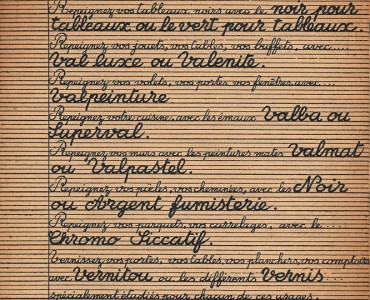 Repeignez vos tableaux noirs avec le noir pour
tableaux ou le vert pour tableaux.
Repeignez vos jouets, vos tables, vos buffets, avec....
Val luxe ou Valenite.
Repeignez vos volets, vos portes vos fenêtres, avec....
Valpeinture
Repeignez votre cuisine, avec les émaux Valba ou
Superval.
Repeignez vos murs avec les peintures mates Valmat
ou Valpastel.
Repeignez vos poêles, vos cheminées, avec les Noir
ou Argent fumisterie.
Repeignez vos parquets, vos carrelages, avec le ...
Chromo Siccatif.
Vernissez, vos portes, vos tables, vos planchers, vos comptoirs
avec Vernitou ou les différents Vernis...
spécialement étudiés pour chacun de ces usages